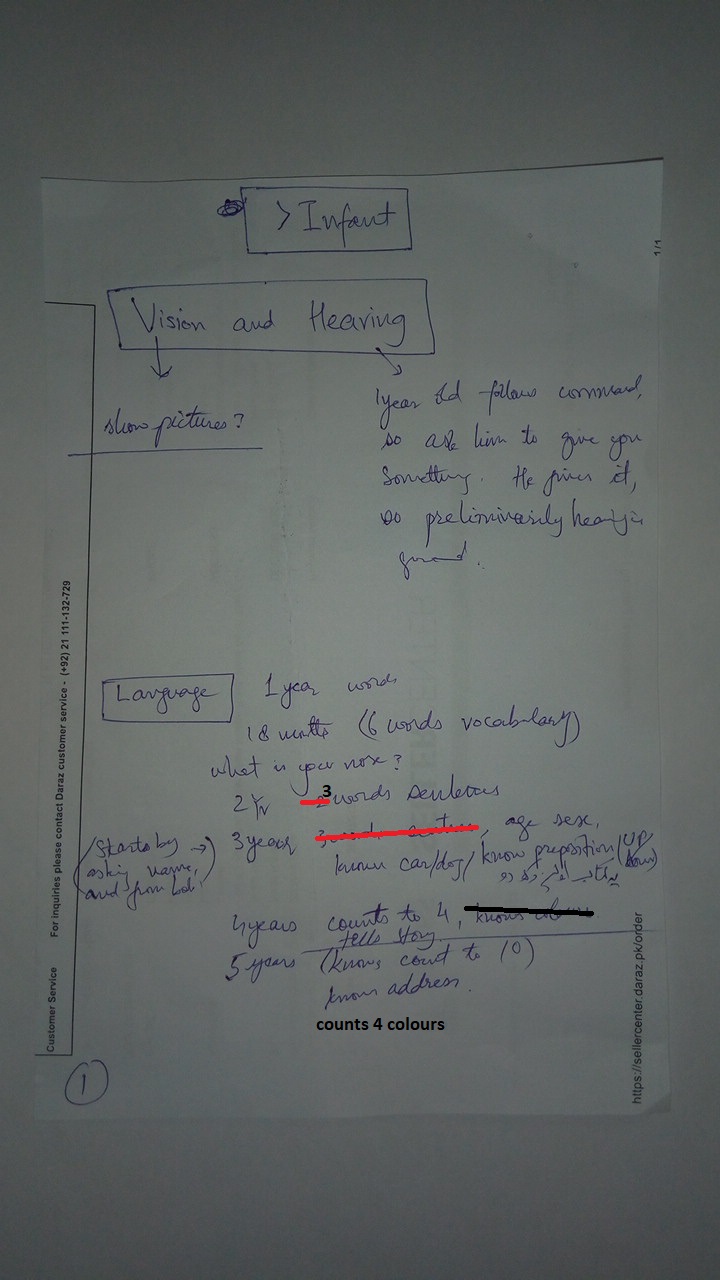 > Infant
Vision and Hearing
show pictures?
1 year old follows command,
so ask him to give you
Something. He gives it,
so preliminarily hearing is
good.
Language
1 year words
18 months (6 words vocabulary)
what is your nose?
2 Yr 3 words sentences
3 years , age sex,
known car/dog/ know preposition (UP/
(Starts by →)
asking name,
and from
4 years counts to 4,
tells story
5 years (knows count to 10)
know address.
counts 4 colours
1
1/1
Customer Service
For inquiries please contact Daraz customer service - (+92) 21 111-132-729
https://sellercenter.daraz.pk/order